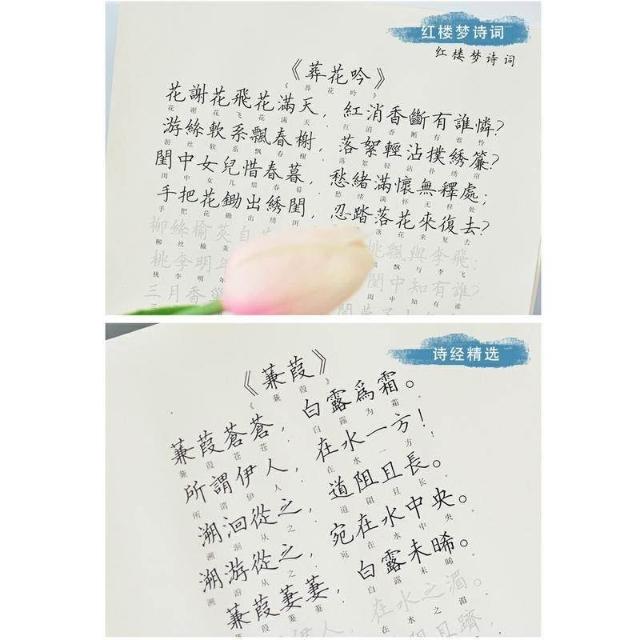 红楼梦诗词
红楼梦诗词
《葬花吟》
花謝花飛花滿天，紅消香斷有誰憐？
游絲軟系飄春榭，落絮輕沾撲綉簾？
閨中女兒惜春暮，愁緒滿懷無釋處；
手把花鋤出綉閨，忍踏落花來復去？
柳絲榆莢自
飄與李飛；
桃李明年
閨中知有誰？
三月香
诗经精选
《蒹葭》
蒹葭蒼蒼，白露爲霜。
所謂伊人，在水一方！
溯洄從之，道阻且長。
溯游從之，宛在水中央。
蒹葭萋萋，白露未晞。
在水之湄。
道阻且躋